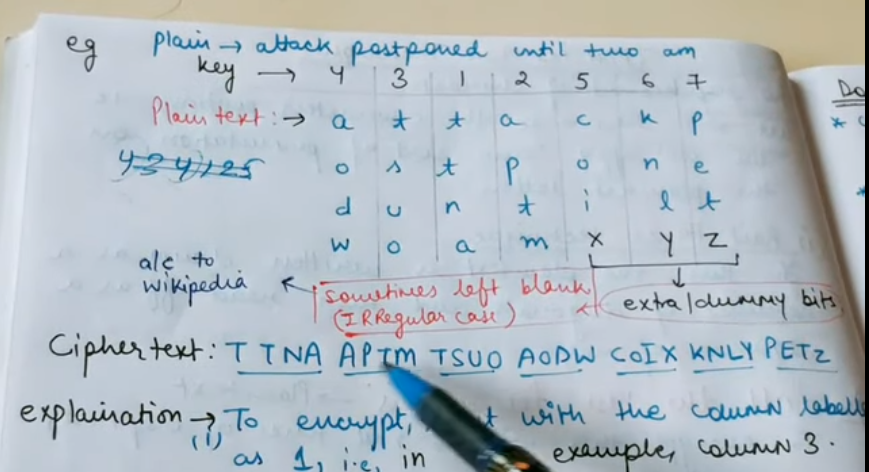 eg Plain → attack postponed until two am
key → 4 3 1 2 5 6 7
Plain text: → a t t a c k p
o s t p o n e
d u n t i l t
w o a m x y z
a/c to
wikipedia
sometimes left blank
(IRRegular case)
extra/dummy bits
Cipher text: T TNA APTM TSUO AODW COIX KNLY PETZ
explaination → To encrypt, with the column labelled
(1) as 1, i.e, in example, column 3.
Do
*